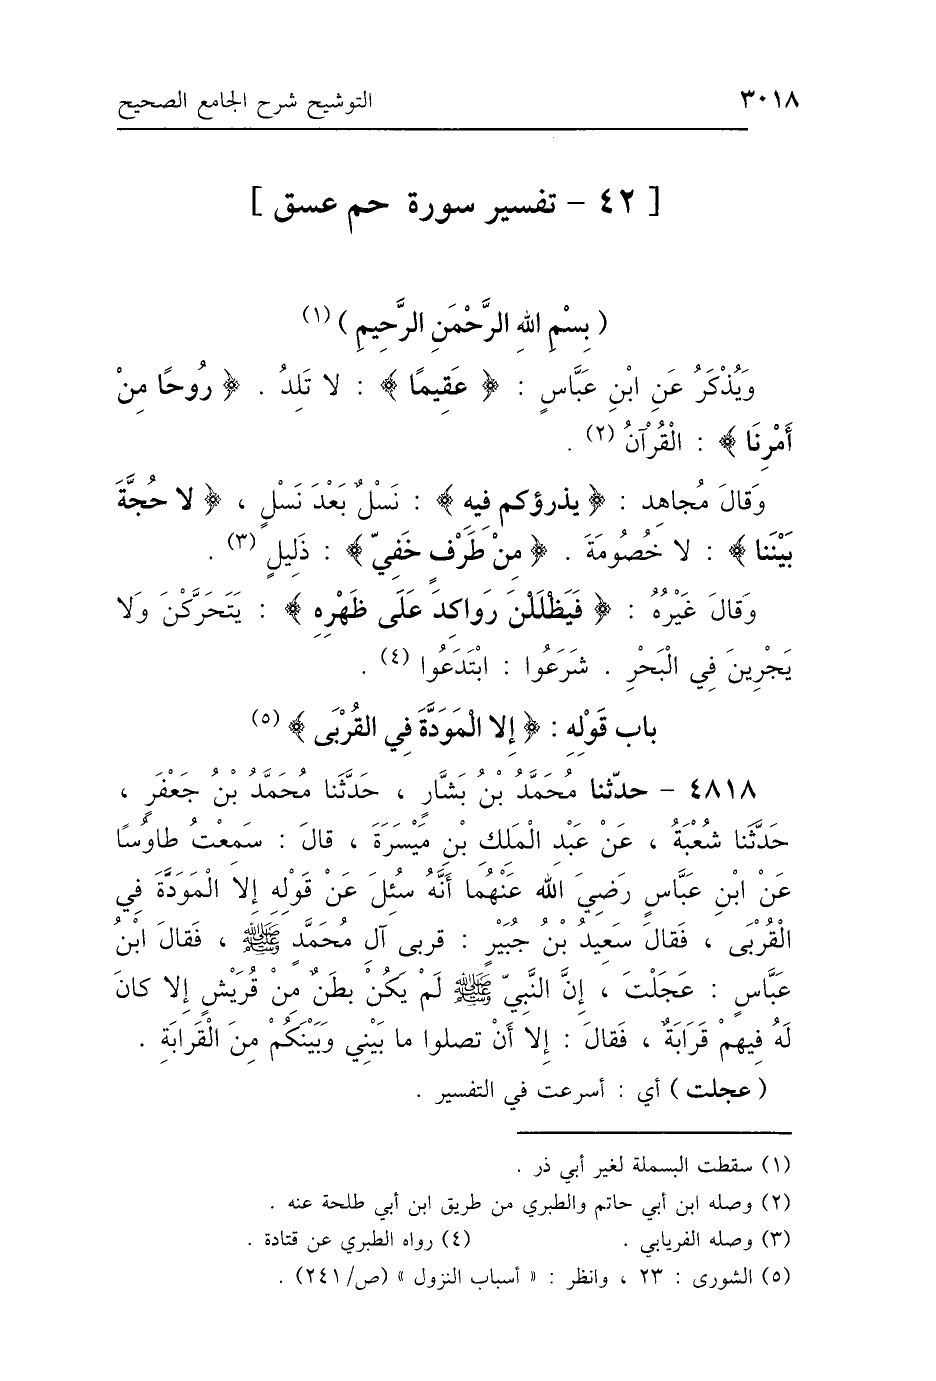 ٣٠١٨ التوشيح شرح الجامع الصحيح
[ ٤٢ - تفسير سورة حم عسق ]
( بِسْمِ اللهِ الرَّحْمَنِ الرَّحِيمِ ) (١)
وَيُذْكَرُ عَنِ ابْنِ عَبَّاسٍ : ﴿ عَقِيمًا ﴾ : لا تَلِدُ . ﴿ رُوحًا مِنْ
أَمْرِنَا ﴾ : الْقُرْآنُ (٢) .
وَقَالَ مُجاهِد : ﴿ يذرؤكم فِيهِ ﴾ : نَسْلٌ بَعْدَ نَسْلٍ ، ﴿ لا حُجَّةَ
بَيْنَنا ﴾ : لا خُصُومَةَ . ﴿ مِنْ طَرَْفٍ خَفِيّ ﴾ : ذَلِيلٍ (٣) .
وَقالَ غَيْرُهُ : ﴿ فَيَظْلَلْنَ رَواكِدَ عَلَى ظَهْرِهِ ﴾ : يَتَحَرَّكْنَ وَلا
يَجْرِينَ فِي الْبَحْرِ . شَرَعُوا : ابْتَدَعُوا (٤) .
باب قَوْلِهِ : ﴿ إِلا الْمَوَدَّةَ فِي الْقُرْبَى ﴾ (٥)
٤٨١٨ - حدّثنا مُحَمَّدُ بْنُ بَشَّارٍ ، حَدَّثَنا مُحَمَّدُ بْنُ جَعْفَرٍ ،
حَدَّثَنا شُعْبَةُ ، عَنْ عَبْدِ الْمَلِكِ بْنِ مَيْسَرَةَ ، قالَ : سَمِعْتُ طاوُسًا
عَنْ ابْنِ عَبَّاسٍ رَضِيَ الله عَنْهُما أَنَّهُ سُئِلَ عَنْ قَوْلِهِ إِلا الْمَوَدَّةَ فِي
الْقُرْبَى ، فَقالَ سَعِيدُ بْنُ جُبَيْرٍ : قربى آلِ مُحَمَّدٍ ﷺ ، فَقالَ ابْنُ
عبَّاسٍ : عَجَلْتَ ، إِنَّ النَّبِيّ ﷺ لَمْ يَكُنْ بطَنٌ مِنْ قُرَيْشٍ إِلا كانَ
لَهُ فِيهِمْ قَرَابَةٌ ، فَقالَ : إِلا أَنْ تصلوا ما بَيْنِي وَبَيْنَكُمْ مِنَ الْقَرابَةِ .
( عجلت ) أي : أسرعت في التفسير .
(١) سقطت البسملة لغير أبي ذر .
(٢) وصله ابن أبي حاتم والطبري من طريق ابن أبي طلحة عنه .
(٣) وصله الفريابي . (٤) رواه الطبري عن قتادة .
(٥) الشورى : ٢٣ ، وانظر : « أسباب النزول » (ص/٢٤١) .